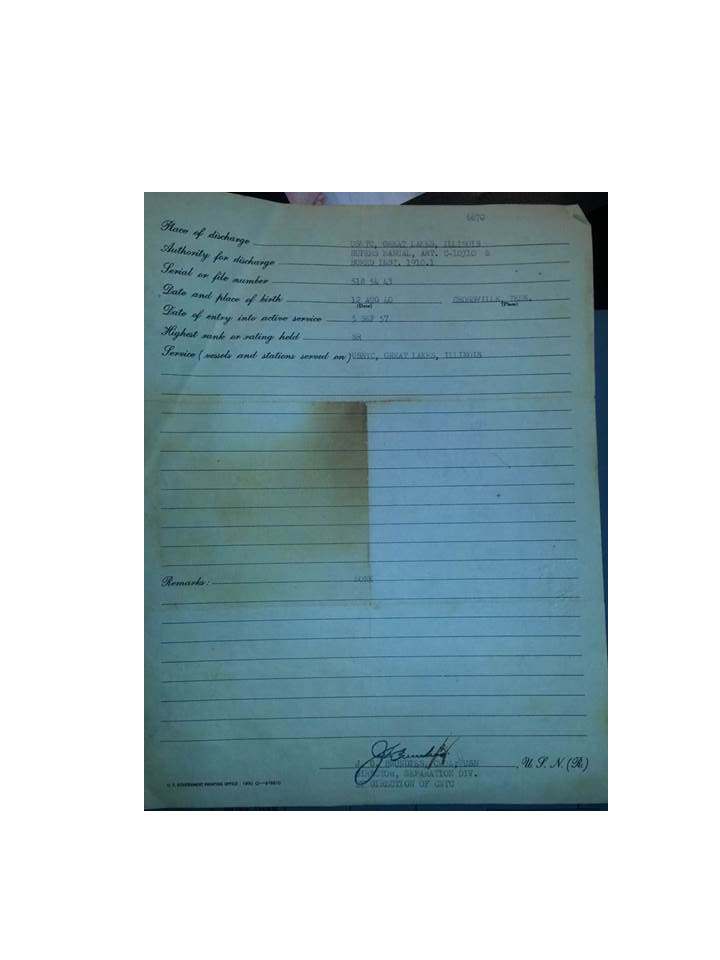 Place of discharge GREAT LAKES, ILLINOIS
Authority for discharge BUPERS MANUAL, ART. &
INST. 1910.1
Serial or file number 518 54 43
Date and place of birth 12 AUG 40 TENN.
(Date) (Place)
Date of entry into active service 5 SEP 57
Highest rank or rating held SR
Service (vessels and stations served on) USNTC, GREAT LAKES, ILLINOIS
Remarks: NONE
USN , U. S. N. (Rt)
DIRECTOR, SEPARATION DIV.
BY DIRECTION OF
U. S. GOVERNMENT PRINTING OFFICE